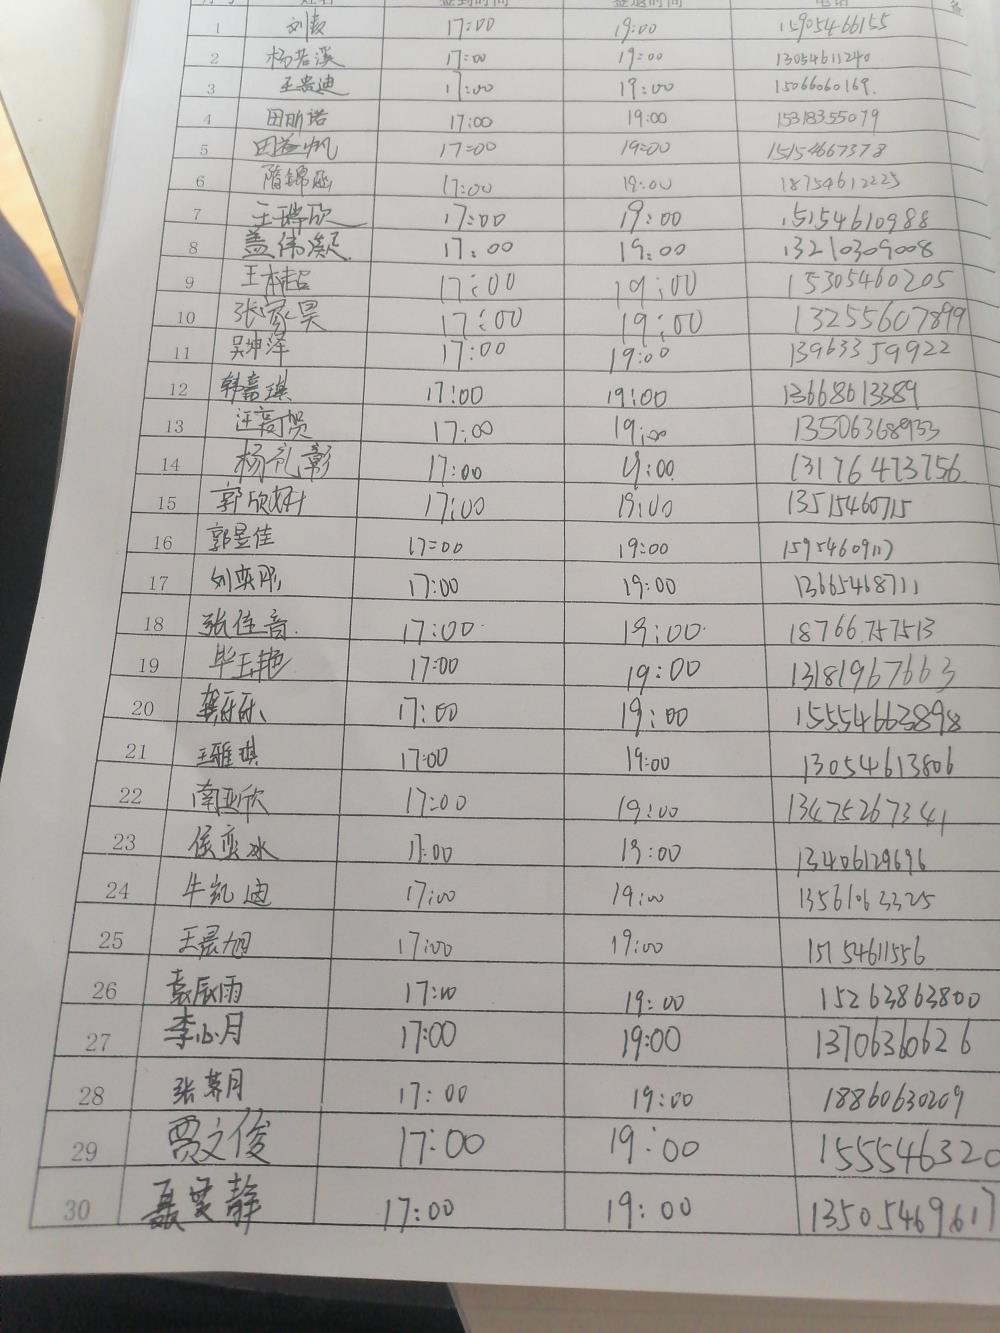 序号 姓名 签到时间 签退时间 电话 备
1 17:00 19:00 15905466155
2 杨若溪 17:00 19:00 13054611240
3 王贵迪 17:00 19:00 15066060169.
4 田昕诺 17:00 19:00 15318355079
5 田益帆 17:00 19:00 15154667378
6 隋锦涵 17:00 19:00 18754612225
7 王瑞欣 17:00 19:00 15154610988
8 盖伟凝 17:00 19:00 13210309008
9 王本超 17:00 19:00 15305460205
10 张家昊 17:00 19:00 13255607899
11 吴坤泽 17:00 19:00 13963359922
12 韩嘉琪 17:00 19:00 13668613389
13 汪高贺 17:00 19:00 13506368933
14 杨礼彰 17:00 19:00 13176473756
15 郭欣妤 17:00 19:00 13515460715
16 郭昱佳 17:00 19:00 1595460917
17 刘奕彤 17:00 19:00 13665468711
18 张佳音 17:00 19:00 18766757513
19 毕玉艳 17:00 19:00 13181967663
20 17:00 19:00 15554663898
21 王雅琪 17:00 19:00 13054613806
22 南亚欣 17:00 19:00 13475267341
23 侯奕冰 17:00 19:00 13406129696
24 牛凯迪 17:00 19:00 13561063325
25 王晨旭 17:00 19:00 15154611556
26 袁辰雨 17:00 19:00 15263863800
27 李心月 17:00 19:00 13706360626
28 张慕月 17:00 19:00 18860630209
29 贾文俊 17:00 19:00 155546320
30 聂雯静 17:00 19:00 13505469617